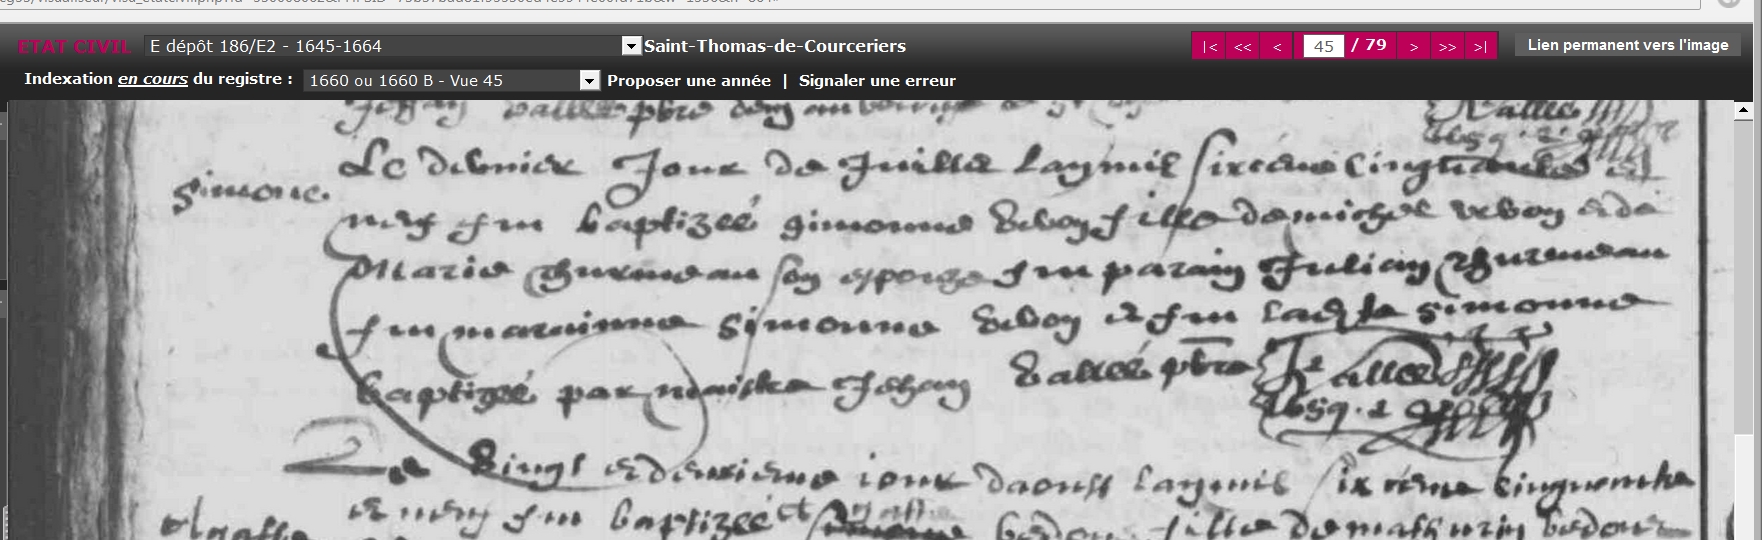 ETAT CIVIL E dépôt 186/E2 - 1645-1664 Saint-Thomas-de-Courceriers |< << < 45 / 79 > >> >| Lien permanent vers l'image
Indexation en cours du registre : 1660 ou 1660 B - Vue 45 Proposer une année | Signaler une erreur
Jehan vallee pbre
Le dernier Jour de Juillet lan mil six cens cinquante et
simone.
neuf fut baptizeé simonne fille de michel et de
Marie son espouze fut parain Julian
fut marainne simonne et fut ladite simonne
baptizeé par maistre Jehan valleé pbre J vallee
1659
Le vingt et deuxieme iour daoust lan mil six cens cinquante
et neuf fut baptizeé fille de mathurin